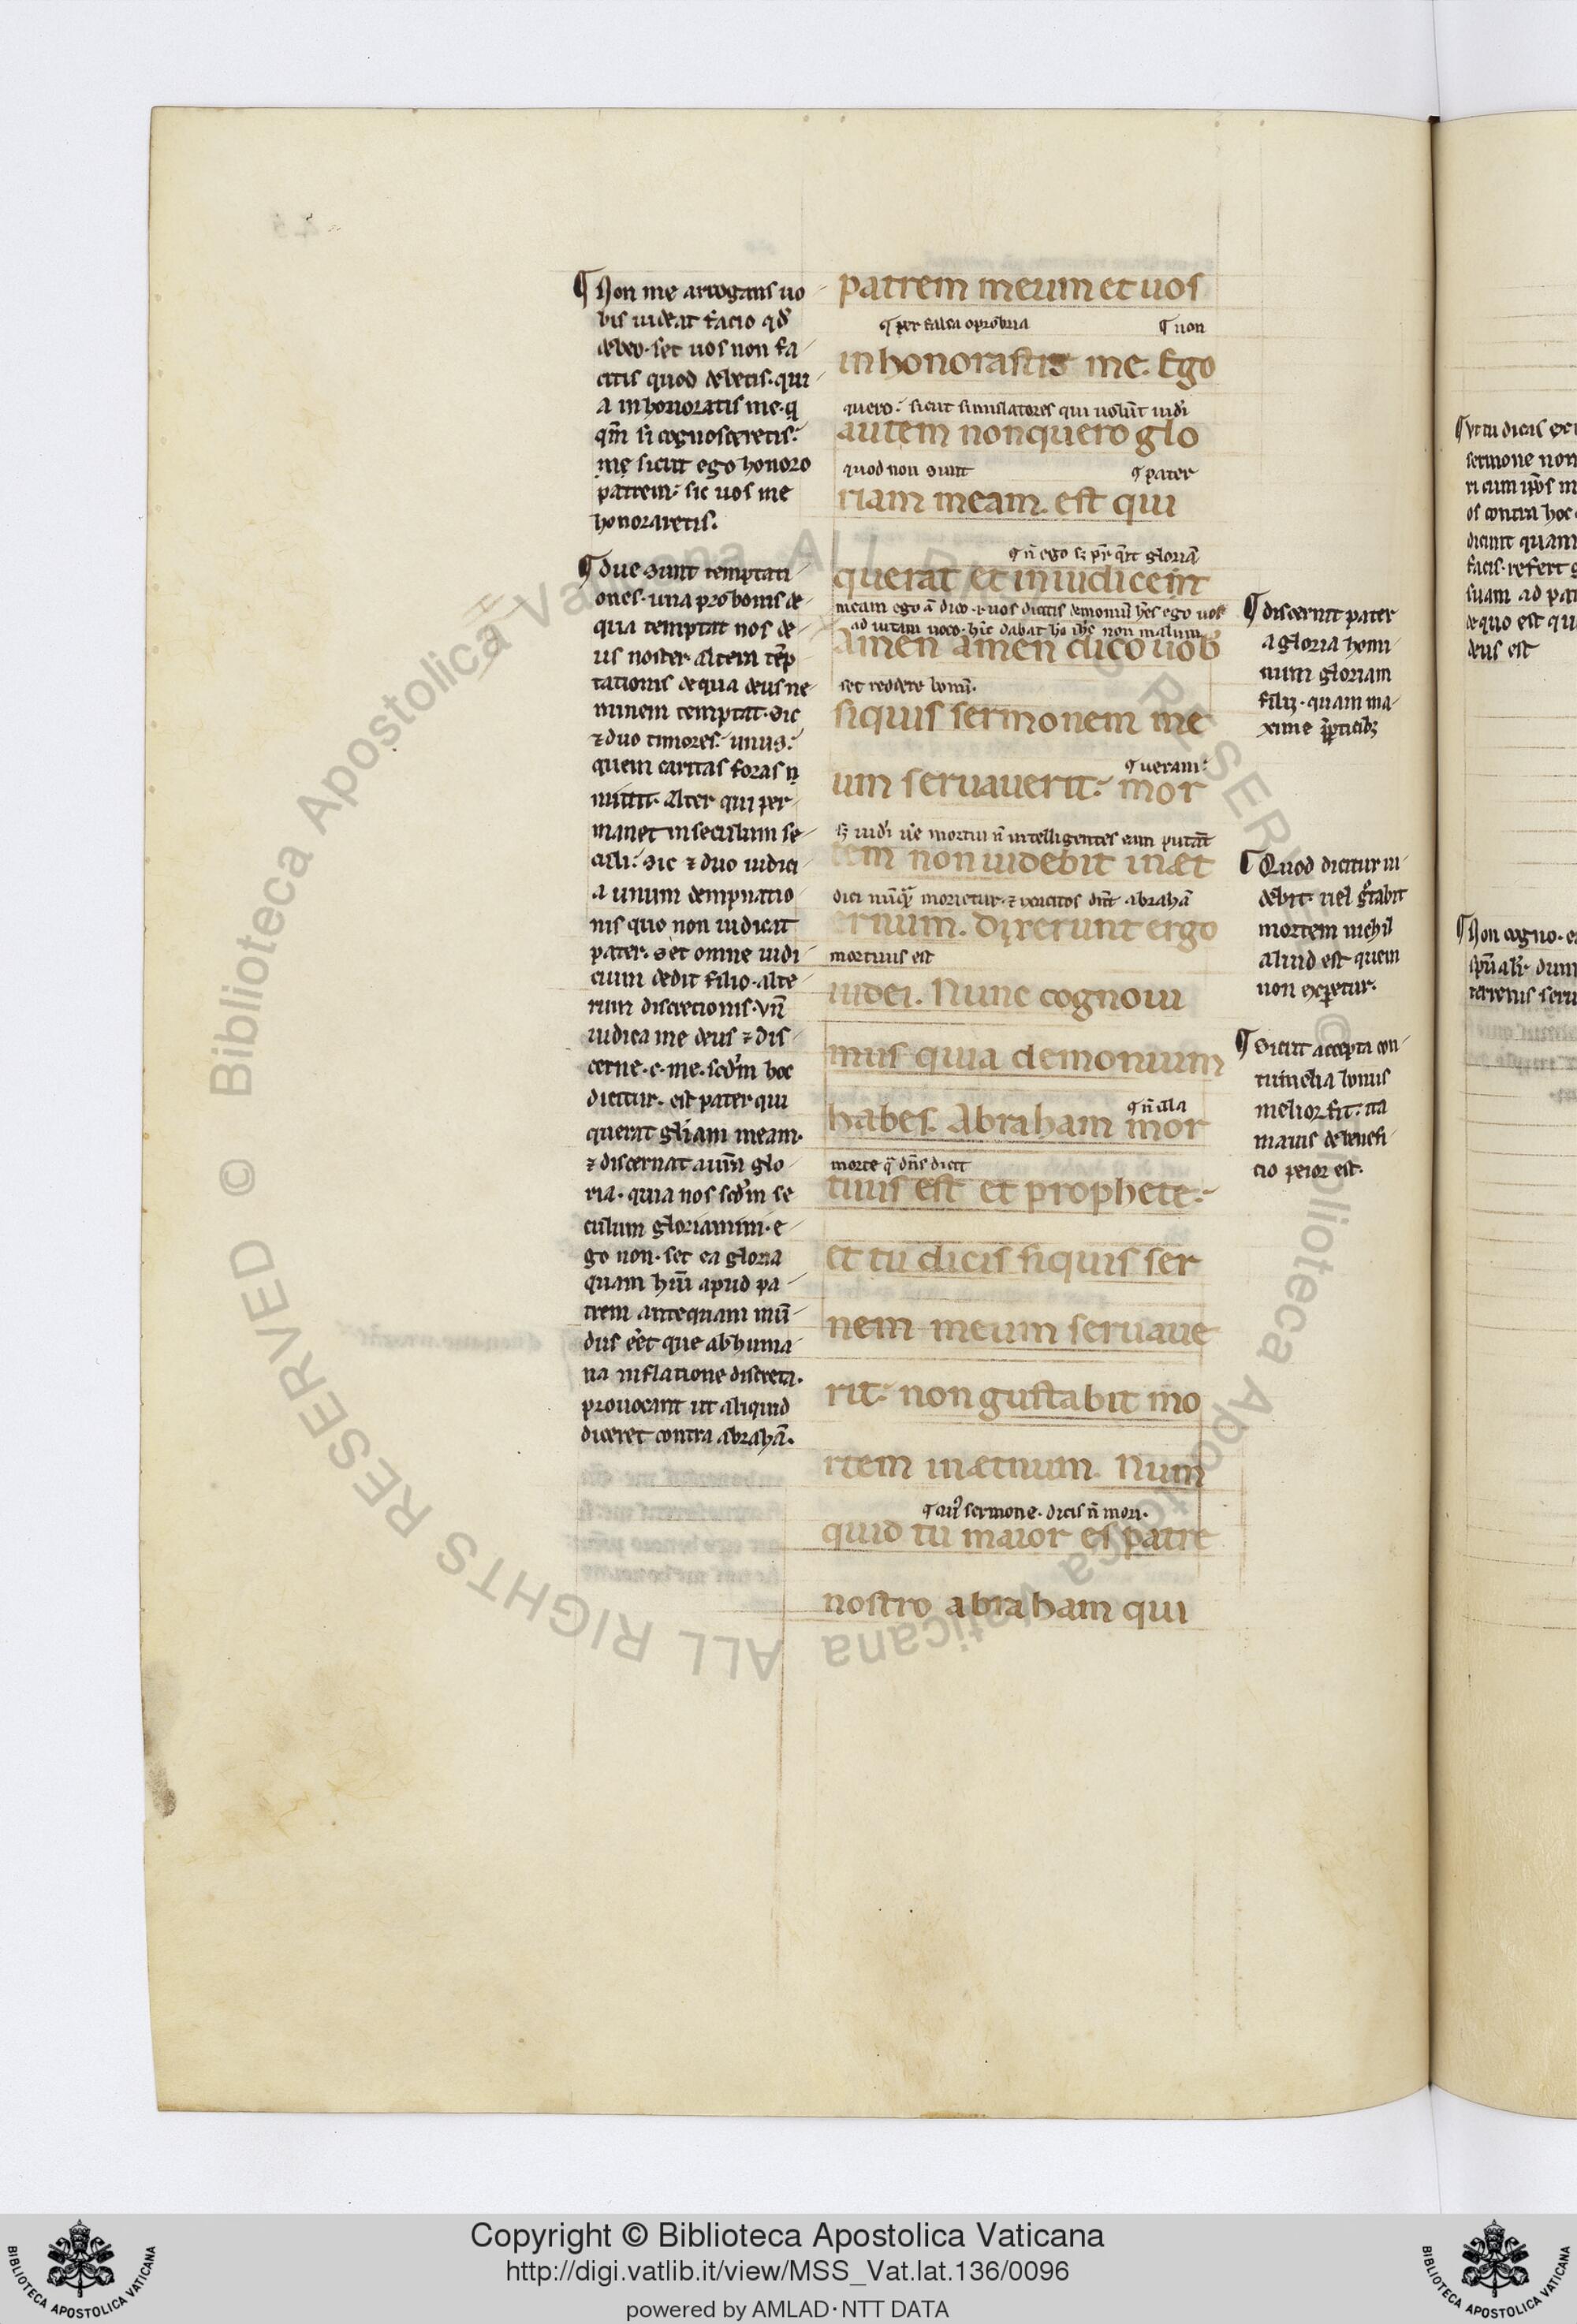 ¶ Non me arrogans uo
bis uideat̄ facio qd̄
debeo. set uos non fa
citis quod debetis. qui
a inhonoratis me. q
qm̄ si cognosceretis:
me sicut ego honoro
patrem: sic uos me
honoraretis.
¶ Due sunt temptati
ones. una pro bonis de
qua temptat nos de
us noster altera tēp
tationis de qua deus ne
minem temptat. Sic
⁊ duo timores. unus:
quem caritas foras
mittit. Alter qui per
manet in seculum se
culi. Sic ⁊ duo iudici
a unum dempnatio
nis quo non iudicat
pater. Set omne iudi
cium dedit filio. alte
rum discretionis. Vn̄
iudica me deus ⁊ dis
cerne. c. me. scd̄m hoc
dicitur. est pater qui
querat gl̄iam meam.
⁊ discernat a uīa glo
ria. quia nos scd̄m se
culum gloriamini. e
go non. set ea gloria
quam hiū apud pa
trem antequam mū
dus eēt que ab huma
na inflatione discreta.
prouocant ut aliquid
diceret contra abrahā.
patrem meum et uos
¶ per falsa oprobria ¶ non
inhonorastis me. Ego
quero. sicut simulatores qui uolūt uidi
autem non quero glo
quod non sunt ¶ pater
riam meam. est qui
¶ n̄ ego s; pr̄ q̄rit gloriā
querat et in iudicent
meam ego ā dico. ⁊ uos dicitis demoniū hēs ego uos
ad uitam uoco. hic dabat non malum
Amen amen dico uob
set reddere bonū.
siquis sermonem me
¶ ueram:
um seruauerit: mor
s; iudi uē mortui n̄ intelligentes eam putāt
tem non uidebit in æt
dici nūq̄ morietur. ⁊ dn̄t abrahā
ernum. Dixerunt ergo
mortuus est
iudei. Nunc cognoui
mus quia demonium
habes. Abraham mor
¶ n̄ illa
morte q̄ dn̄s dicit
tuus est et prophete.
et tu dicis siquis ser
nem meum seruaue
rit: non gustabit mo
rtem in ætnum. Num
sermone. dicis n̄ mori.
quid tu maior es patre
nostro abraham qui
¶ discernit pater
a gloria homi
num gloriam
filii. quam ma
xime
¶ Quod dicitur ui
debit. uel gstabit
mortem nichil
aliud est quem
non expetur.
¶ Sicut accepta con
tumelia bonus
melior fit. ita
malus de benefi
cio peior est.
¶ Vt tu dicis
sermone non
os contra hoc
dicunt quam
facis. refert
suam ad pat
de quo est qu
deus est
¶ Non cogno
dum
terrenis seru
© Biblioteca Apostolica Vaticana ALL RIGHTS RESERVED
© Biblioteca Apostolica Vaticana ALL RIGHTS RESERVED
Copyright © Biblioteca Apostolica Vaticana
http://digi.vatlib.it/view/MSS_Vat.lat.136/0096
powered by AMLAD・NTT DATA
BIBLIOTECA APOSTOLICA VATICANA
BIBLIOTECA APOSTOLICA VATICANA